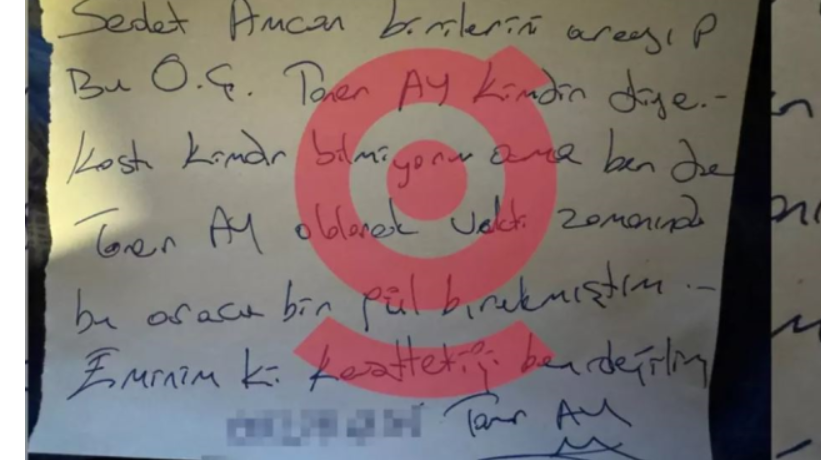 Sedat Amcan birilerini arayıp
Bu O.Ç. Taner AY kimdir diye.-
Kastı kimdir bilmiyorum ama ben de
Taner AY olarak vakti zamanında
bu araca bin pul bırakmıştım.-
Eminim ki kasttettiği ben değilim
Taner AY